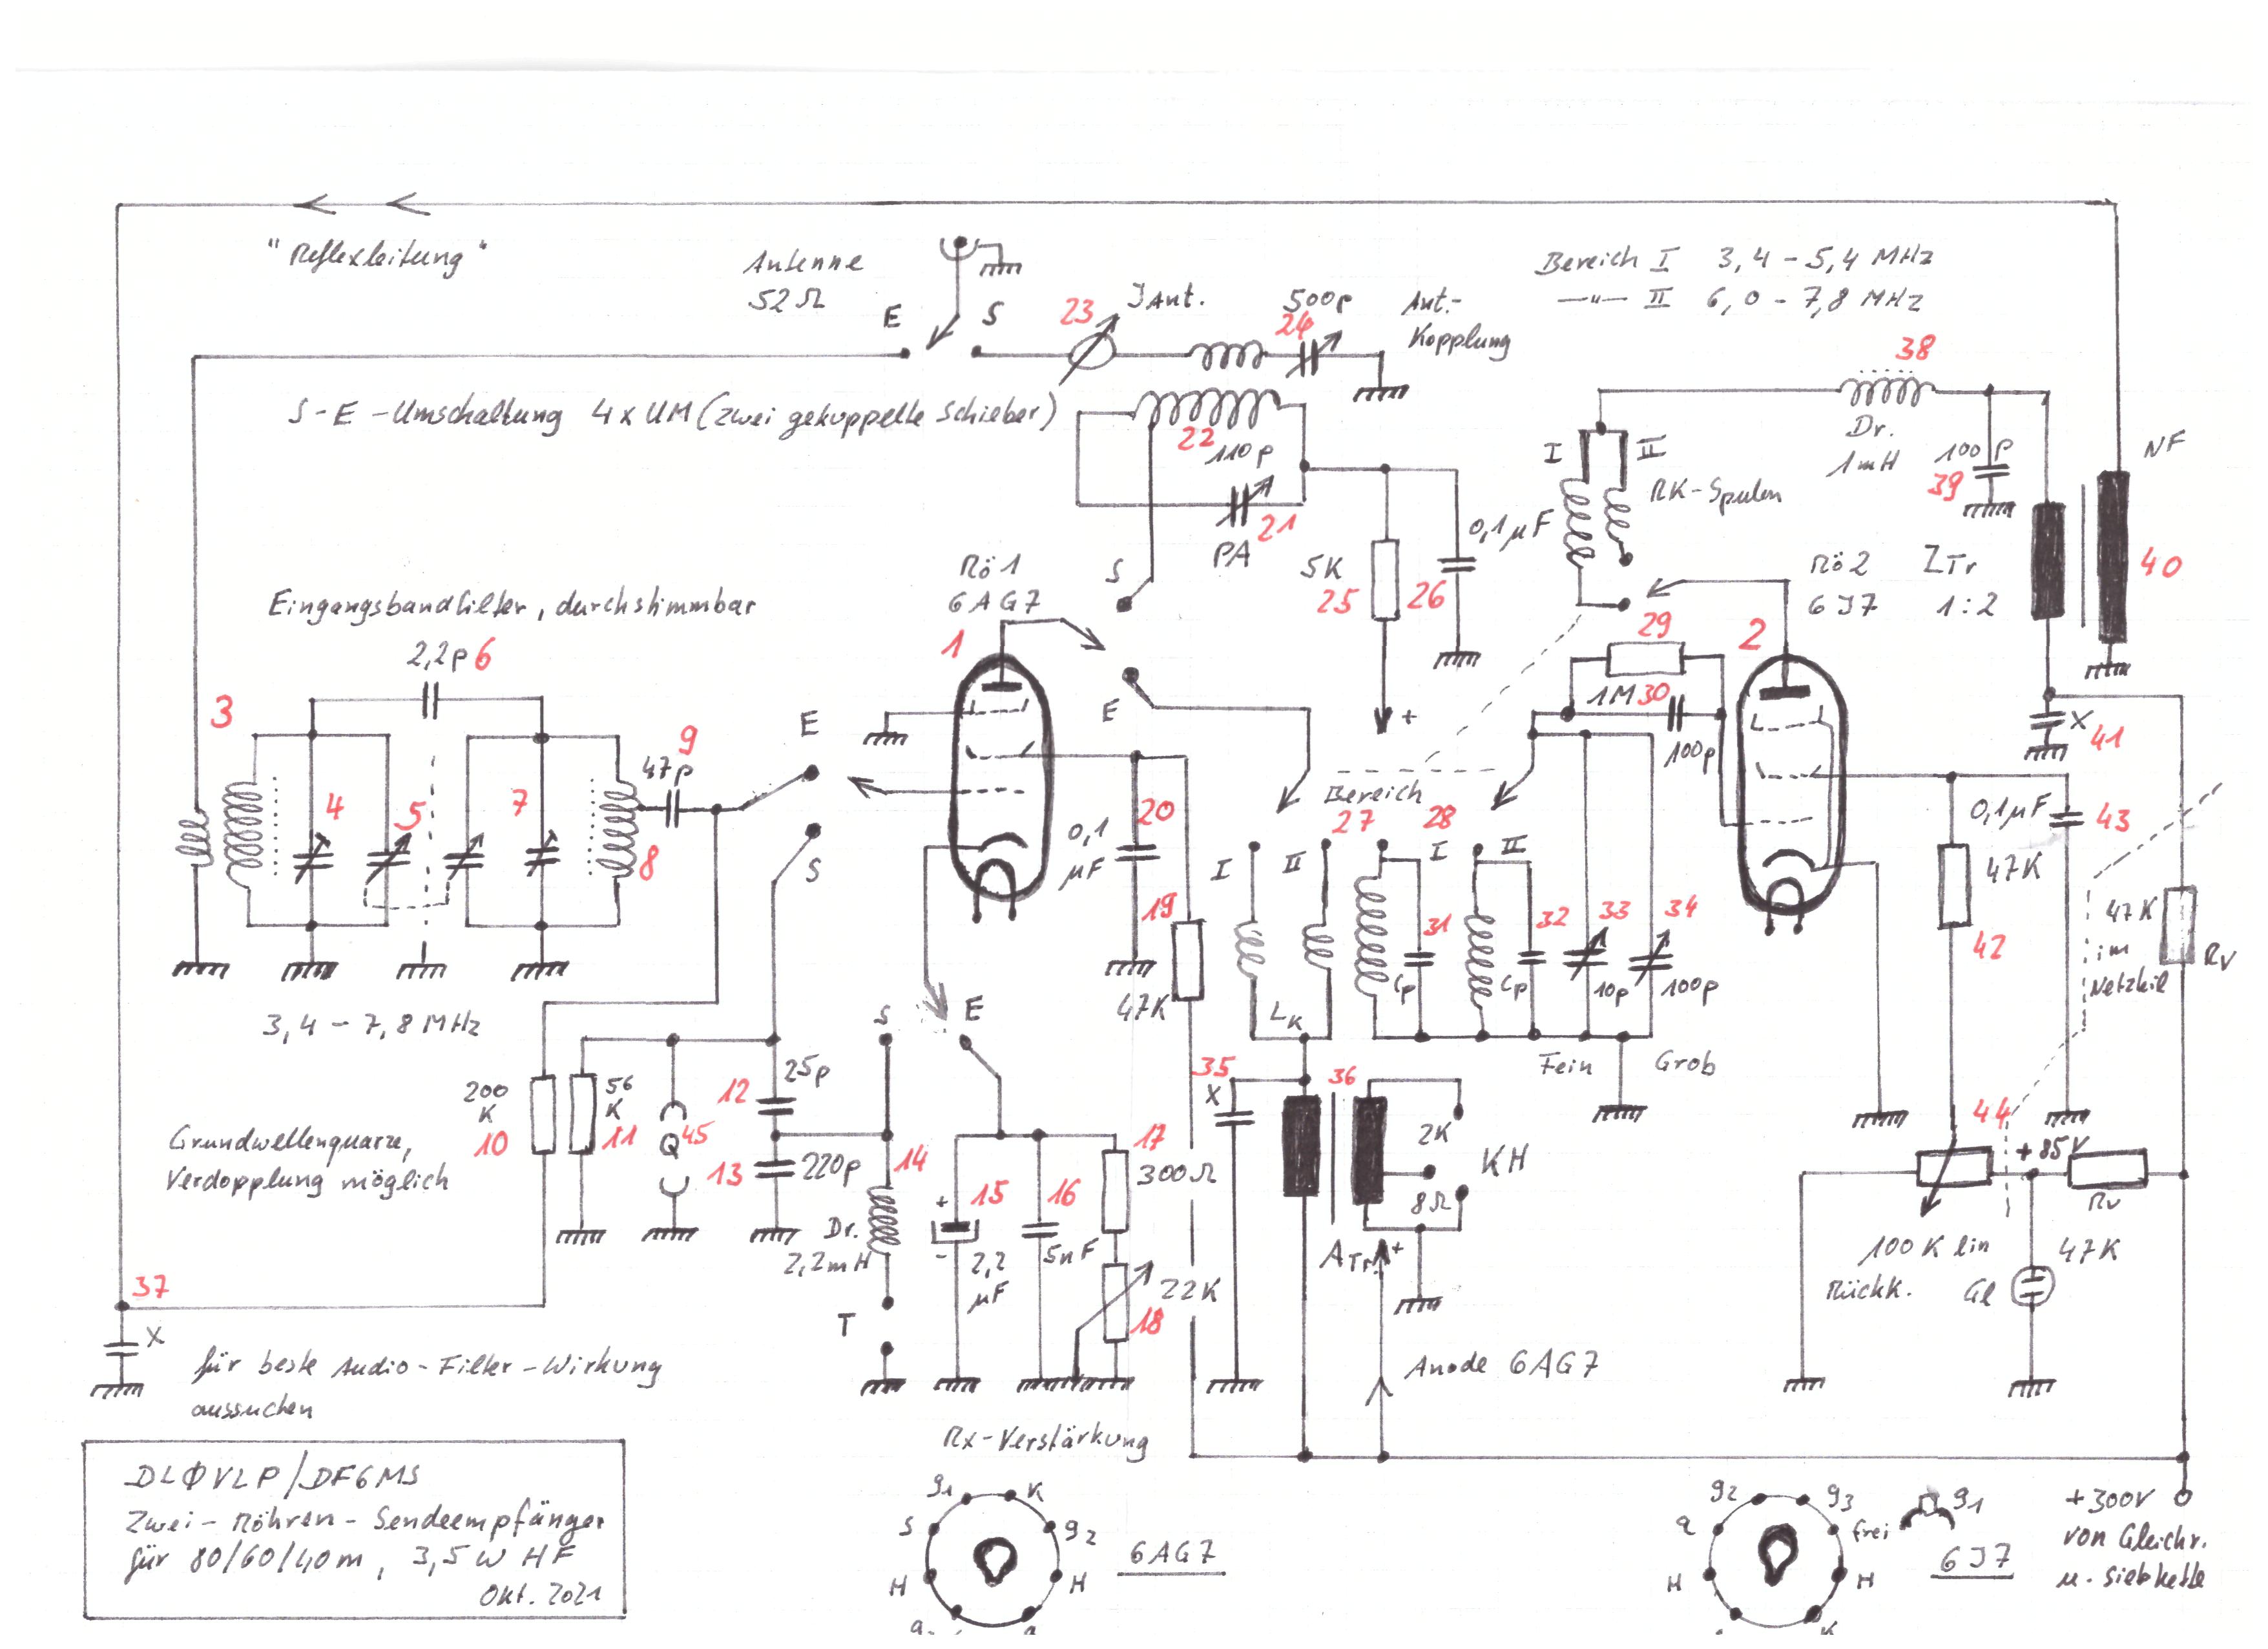 "Reflexleitung"
Antenne
52Ω
E
S
23
J Ant.
500p
24
Ant.-
Kopplung
Bereich I 3,4 – 5,4 MHz
—"— II 6,0 – 7,8 MHz
S-E-Umschaltung 4xUM (zwei gekoppelte Schieber)
22
110p
21
PA
38
Dr.
1mH
100p
39
NF
I
II
RK-Spulen
5K
25
26
0,1µF
Rö1
6AG7
1
S
E
Rö2
6J7
2
ZTr
1:2
40
Eingangsbandfilter, durchstimmbar
2,2p 6
3
4
5
7
8
9
47p
E
S
29
1M
30
100p
+
X
41
Bereich
27
28
I
II
I
II
0,1
µF
20
19
47K
31
Cp
32
Cp
33
10p
34
100p
0,1µF
43
47K
42
47K
im
Netzteil
Rv
3,4 – 7,8 MHz
LK
Fein
Grob
200
K
10
56
K
11
Q
45
12
25p
13
220p
S
E
14
Dr.
2,2mH
T
15
+
-
2,2
µF
16
5nF
17
300Ω
22K
18
35
X
36
2K
8Ω
KH
ATr.
+
44
+85V
Rv
47K
100K lin
Rückk.
Gl
Grundwellenquarze,
Verdopplung möglich
37
X
für beste Audio-Filter-Wirkung
aussuchen
Anode 6AG7
Rx-Verstärkung
DLØVLP/DF6MS
Zwei-Röhren-Sendeempfänger
für 80/60/40m, 3,5W HF
Okt. 2021
g1
K
S
g2
H
H
6AG7
g2
g3
a
frei
g1
H
H
K
6J7
+300V
von Gleichr.
u. Siebkette